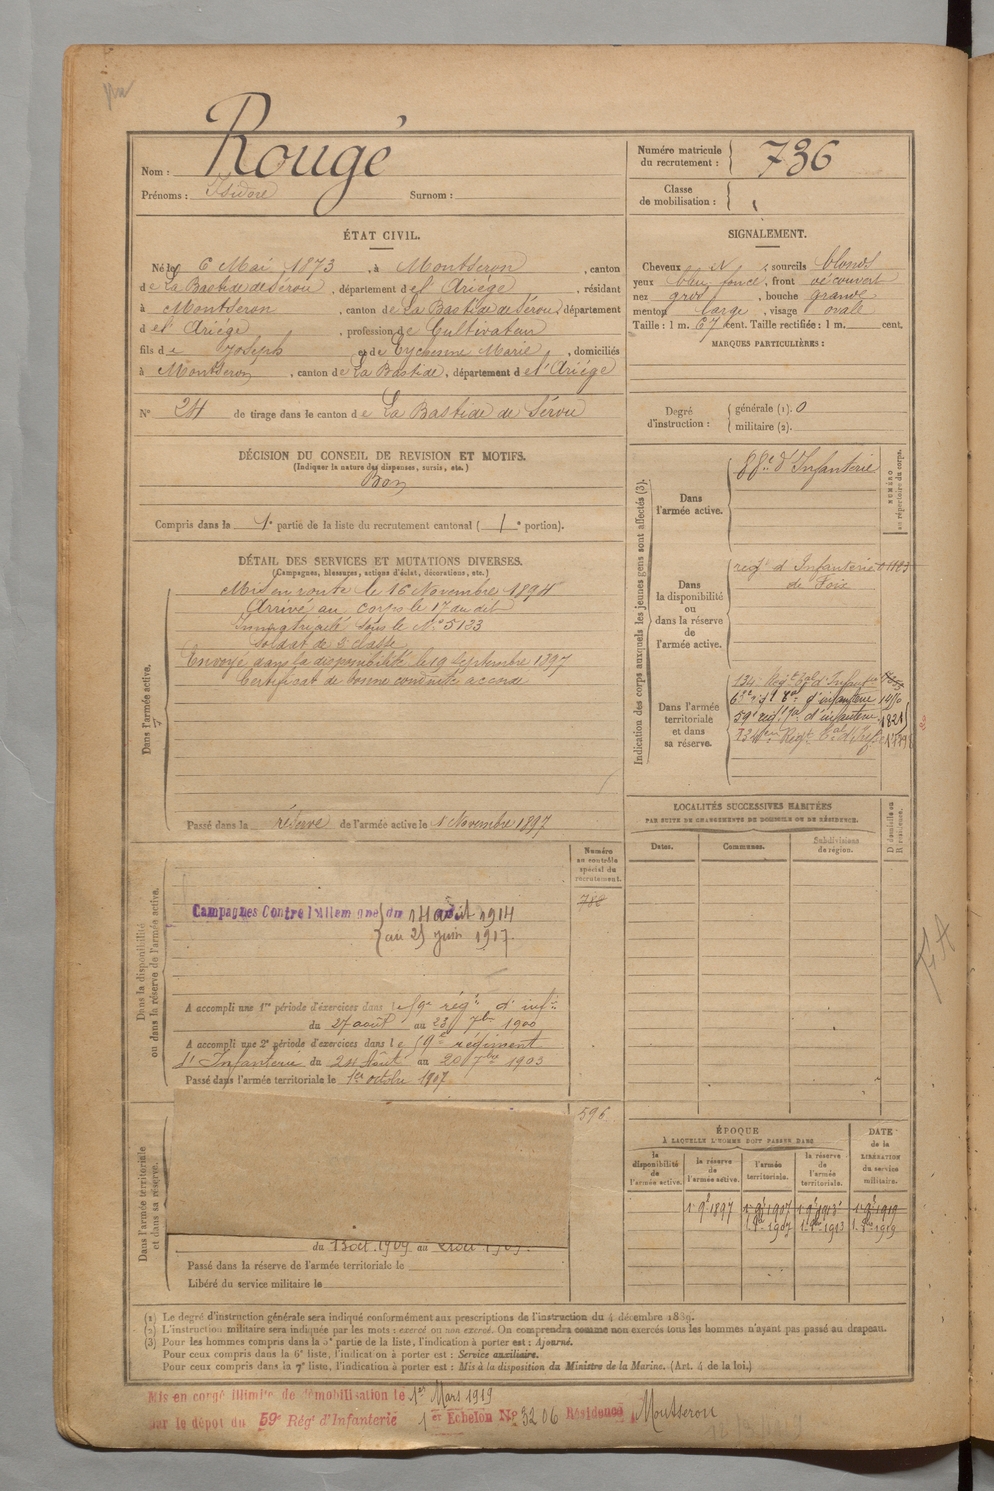 Nom : Rougé
Prénoms : Isidore Surnom :
Numéro matricule du recrutement : 736
Classe de mobilisation :
ÉTAT CIVIL.
Né le 6 Mai 1873, à Montseron, canton
de La Bastide de Sérou, département de l'Ariège, résidant
à Montseron, canton de La Bastide de Sérou, département
de l'Ariège, profession de Cultivateur
fils de Joseph et de Eychenne Marie, domiciliés
à Montseron, canton de La Bastide, département de l'Ariège
N° 24 de tirage dans le canton de La Bastide de Sérou
SIGNALEMENT.
Cheveux , sourcils blonds
yeux bleu foncé, front découvert
nez gros, bouche grande
menton large, visage ovale
Taille : 1 m. 67 cent. Taille rectifiée : 1 m. cent.
MARQUES PARTICULIÈRES :
Degré d'instruction : générale (1). 0
militaire (2).
DÉCISION DU CONSEIL DE REVISION ET MOTIFS.
(Indiquer la nature des dispenses, sursis, etc.)
Bon
Compris dans la 1e partie de la liste du recrutement cantonal ( 1e portion).
DÉTAIL DES SERVICES ET MUTATIONS DIVERSES.
(Campagnes, blessures, actions d'éclat, décorations, etc.)
Dans l'armée active.
Mis en route le 16 Novembre 1894
Arrivé au corps le 17 du dit
Immatriculé sous le N° 5123
Soldat de 2e classe
Envoyé dans la disponibilité le 19 Septembre 1897
Certificat de bonne conduite accordé
Passé dans la réserve de l'armée active le 1 Novembre 1897
Indication des corps auxquels les jeunes gens sont affectés (3).
NUMÉRO au répertoire du corps.
Dans l'armée active.
88e d'Infanterie
Dans la disponibilité ou dans la réserve de l'armée active.
regt d'Infanterie
de Foix
Dans l'armée territoriale et dans sa réserve.
134 Regt tal d'Infant
59e reg. d'infanterie 1821
LOCALITÉS SUCCESSIVES HABITÉES
PAR SUITE DE CHANGEMENTS DE DOMICILE OU DE RÉSIDENCE.
Dates. Communes. Subdivisions de région. D domicile ou R résidence.
Dans la disponibilité ou dans la réserve de l'armée active.
Numéro au contrôle spécial du recrutement.
788
Campagnes Contre l'Allemagne du 14 août 1914
au 25 juin 1917.
A accompli une 1re période d'exercices dans le 59e régt d'inf.
du 27 août au 23 7bre 1900
A accompli une 2e période d'exercices dans le 59e régiment
d'Infanterie du 24 Août au 20 7bre 1903
Passé dans l'armée territoriale le 1er octobre 1907
Dans l'armée territoriale et dans sa réserve.
596
du 13 oct. 1909 au
Passé dans la réserve de l'armée territoriale le
Libéré du service militaire le
ÉPOQUE
À LAQUELLE L'HOMME DOIT PASSER DANS
la disponibilité de l'armée active.
la réserve de l'armée active.
l'armée territoriale.
la réserve de l'armée territoriale.
DATE de la LIBÉRATION du service militaire.
1 9bre 1897 1 9bre 1907 1 9bre 1913 1 9bre 1919
1907 1913 1919
(1) Le degré d'instruction générale sera indiqué conformément aux prescriptions de l'instruction du 4 décembre 1889.
(2) L'instruction militaire sera indiquée par les mots : exercé ou non exercé. On comprendra comme non exercés tous les hommes n'ayant pas passé au drapeau.
(3) Pour les hommes compris dans la 5e partie de la liste, l'indication à porter est : Ajourné.
Pour ceux compris dans la 6e liste, l'indication à porter est : Service auxiliaire.
Pour ceux compris dans la 7e liste, l'indication à porter est : Mis à la disposition du Ministre de la Marine. (Art. 4 de la loi.)
Mis en congé illimité de démobilisation le 1er Mars 1919
par le dépôt du 59e Régt d'Infanterie 1er Echelon N° 3206 Résidence Montseron